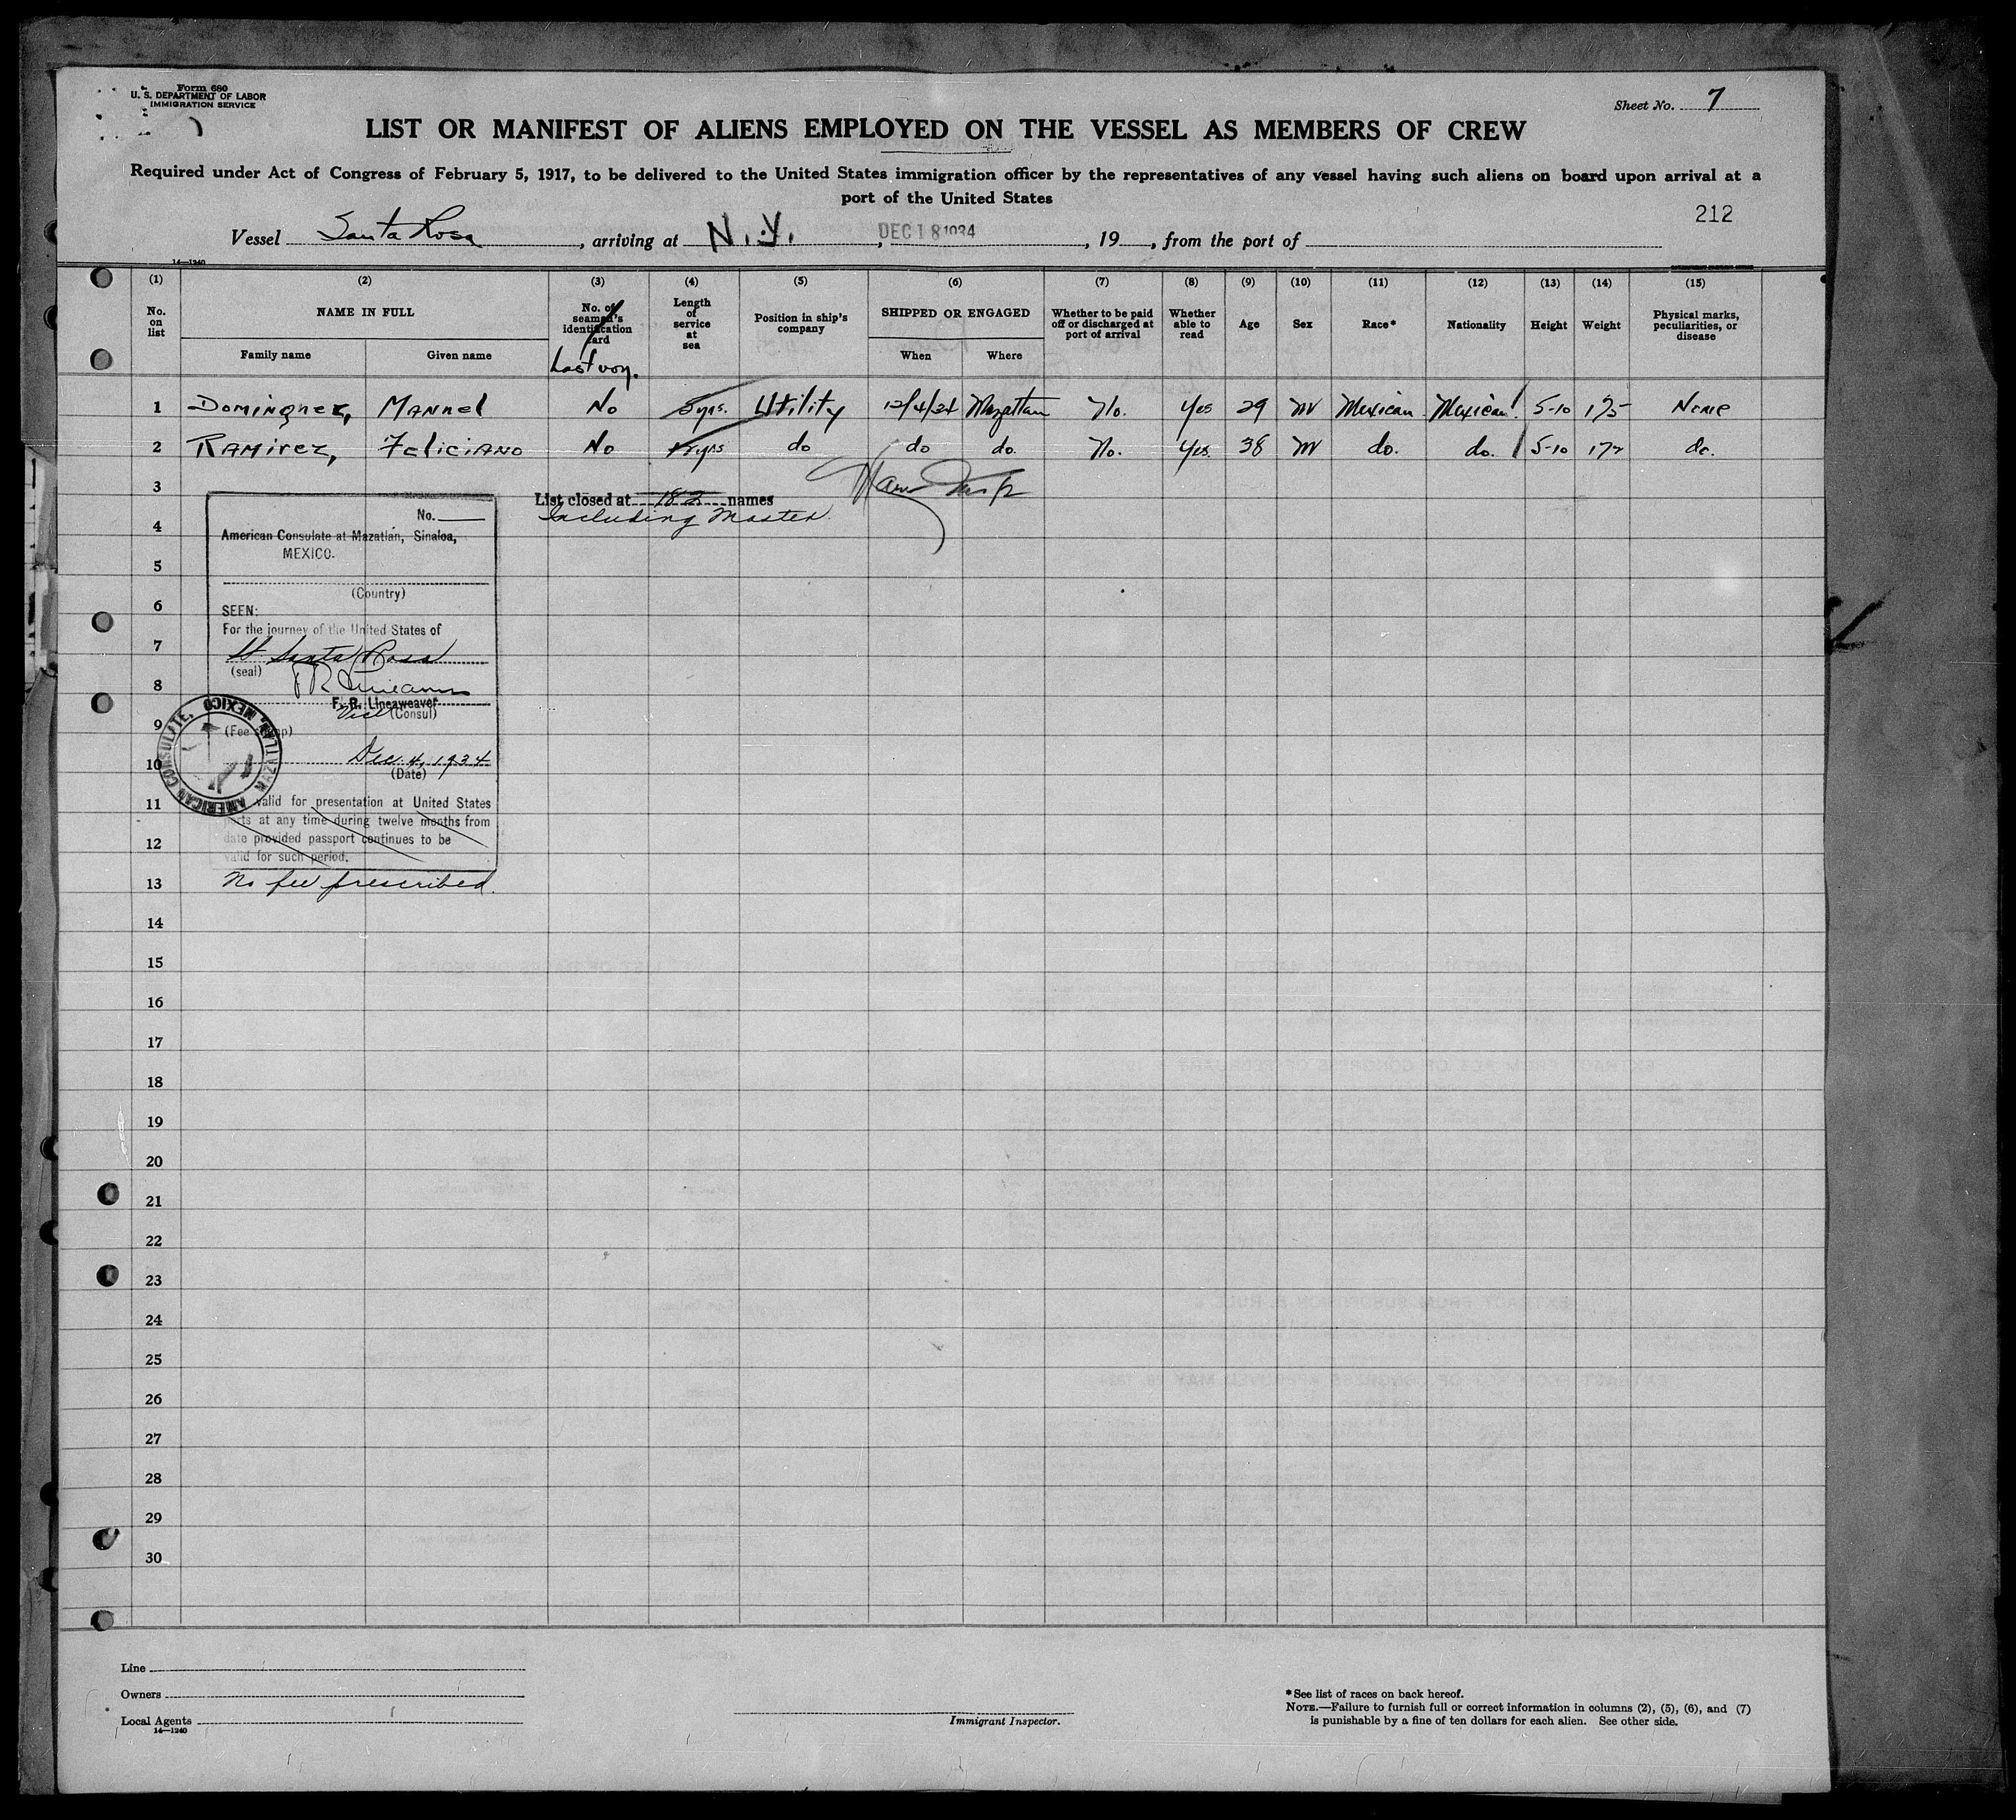 Form 680
U. S. DEPARTMENT OF LABOR
IMMIGRATION SERVICE
Sheet No. 7
LIST OR MANIFEST OF ALIENS EMPLOYED ON THE VESSEL AS MEMBERS OF CREW
Required under Act of Congress of February 5, 1917, to be delivered to the United States immigration officer by the representatives of any vessel having such aliens on board upon arrival at a
port of the United States
212
Vessel Santa Rosa, arriving at N.Y., DEC 18 1934, 19, from the port of
14—1240
(1) (2) (3) (4) (5) (6) (7) (8) (9) (10) (11) (12) (13) (14) (15)
No. on list
NAME IN FULL
Family name Given name
No. of seaman's identification card
Last voy.
Length of service at sea
Position in ship's company
SHIPPED OR ENGAGED
When Where
Whether to be paid off or discharged at port of arrival
Whether able to read
Age
Sex
Race*
Nationality
Height
Weight
Physical marks, peculiarities, or disease
1 Dominguez, Manuel No 5 yrs. Utility 12/4/34 Mazatlan No. Yes 29 M Mexican Mexican 5-10 175 None
2 Ramirez, Feliciano No yrs do do do. No. Yes. 38 M do. do. 5-10 172 do.
3
List closed at 182 names
Including Master.
4
5
6
7
8
9
10
11
12
13
14
15
16
17
18
19
20
21
22
23
24
25
26
27
28
29
30
No.
American Consulate at Mazatlan, Sinaloa,
MEXICO.
(Country)
SEEN:
For the journey of the United States of
SS Santa Rosa
(seal)
F. R. Lineaweaver
Vice (Consul)
(Fee stamp)
Dec. 4, 1934
(Date)
valid for presentation at United States
ports at any time during twelve months from
date provided passport continues to be
valid for such period.
No fee prescribed.
AMERICAN CONSULATE, MAZATLAN, MEXICO
Line
Owners
Local Agents
14—1240
Immigrant Inspector.
*See list of races on back hereof.
NOTE.—Failure to furnish full or correct information in columns (2), (5), (6), and (7)
is punishable by a fine of ten dollars for each alien. See other side.